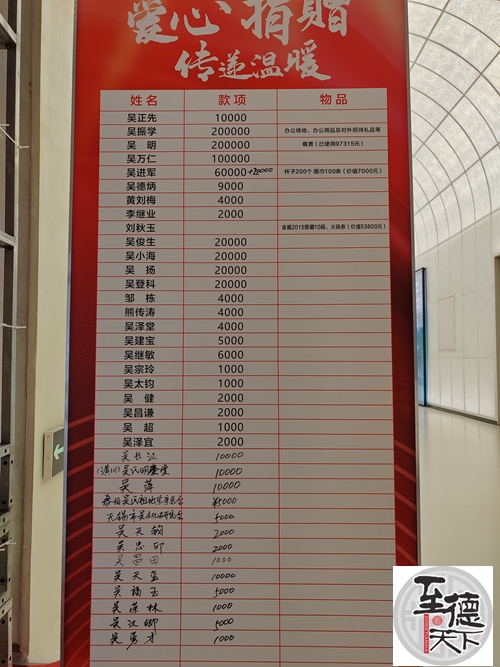 爱心捐赠
传递温暖
姓名 款项 物品
吴正先 10000
吴振学 200000 办公场地、办公用品及对外招待礼品等
吴 明 200000 餐费(已使用97315元)
吴万仁 100000
吴进军 60000+20000 杯子200个 围巾100条(价值7000元)
吴德炳 9000
黄刘梅 4000
李继业 2000
刘秋玉 金酱2015窖藏10箱、火锅券(价值53800元)
吴俊生 20000
吴小海 20000
吴 扬 20000
吴登科 20000
邹 栋 4000
熊传涛 4000
吴泽堂 4000
吴建宝 5000
吴继敏 6000
吴宗玲 1000
吴太钧 1000
吴 健 2000
吴昌谦 2000
吴 超 1000
吴泽宜 2000
吴长江 10000
(潢川)吴氏明 10000
吴萍 10000
5000
无锡市吴文化研究会 5000
吴天 2000
吴忠印 2000
吴 田 1000
吴天玺 10000
吴福玉 5000
吴荣林 1000
吴汉卿 5000
吴勇才 1000
至德天下